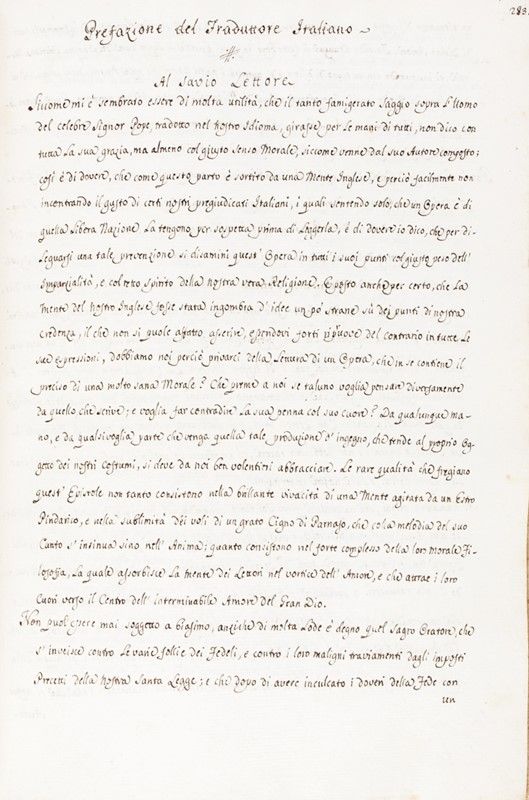 283.
Prefazione del Traduttore Italiano
Al savio Lettore
Siccome mi è sembrato essere di molta utilità, che il tanto famigerato Saggio sopra l'Uomo
del celebre Signor Pope, tradotto nel nostro Idioma, girasse per le mani di tutti, non dico con
tutta la sua grazia, ma almeno col giusto senso Morale, siccome venne dal suo Autore composto;
così è di dovere, che come questo parto è sortito da una Mente Inglese, e perciò facilmente non
incontrando il gusto di certi nostri pregiudicati Italiani, i quali sentendo solo, che un Opera è di
quella libera Nazione la tengono per sospetta prima di leggerla, è di dovere io dico, che per di-
leguarsi una tale prevenzione si disamini quest' Opera in tutti i suoi punti col giusto peso dell'
Imparzialità, e col retto spirito della nostra vera Religione. E posto anche per certo, che la
mente del nostro Inglese fosse stata ingombra d' idee un po' strane sù dei punti di nostra
credenza, il che non si puole affatto asserire, essendovi forti prove del contrario in tutte le
sue espressioni, dobbiamo noi perciò privarci della Lettura di un Opera, che in se contiene il
preciso di una molto sana Morale? Che preme a noi se taluno voglia pensare diversamente
da quello che scrive; e voglia far contradire la sua penna col suo cuore? Da qualunque ma-
no, e da qualsivoglia parte che venga quella tale produzione d' ingegno, che tende al proprio Og-
getto dei nostri Costumi, si deve da noi ben volentieri abbracciare. Le rare qualità che fregiano
quest' Epistole non tanto consistono nella brillante vivacità di una Mente agitata da un Estro
Pindarico, e nella sublimità dei voli di un grato Cigno di Parnaso, che colla melodia del suo
Canto s' insinua sino nell' Anima; quanto consistono nel forte complesso della loro Morale Fi-
losofia, la quale assorbisce la mente dei Lettori nel vortice dell' Amore, e che attrae i loro
Cuori verso il Centro dell' interminabile Amore del Gran Dio.
Non puol essere mai soggetto a biasimo, anziche di molta Lode è degno quel Sagro Oratore, che
s' inveisce contro le varie follie dei Fedeli, e contro i loro maligni traviamenti dagli imposti
Precetti della nostra Santa Legge; e che dopo di avere inculcato i doveri della Fede con
un